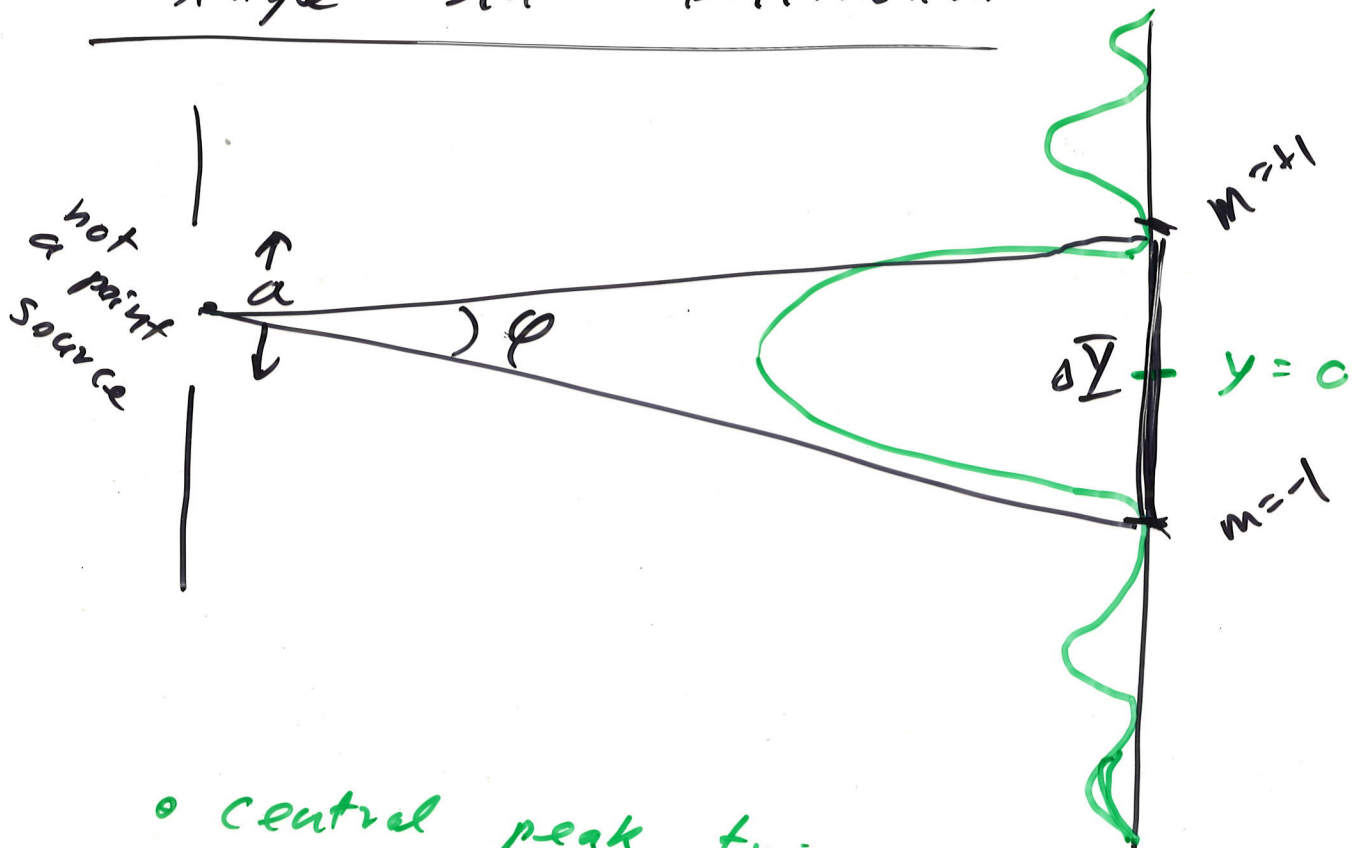 not
a point
source
a
φ
m=+1
ΔY
y = 0
m=-1
• central peak